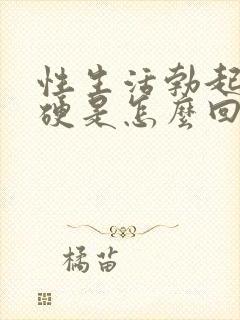 性生活勃起
硬是怎麼回
橘苗